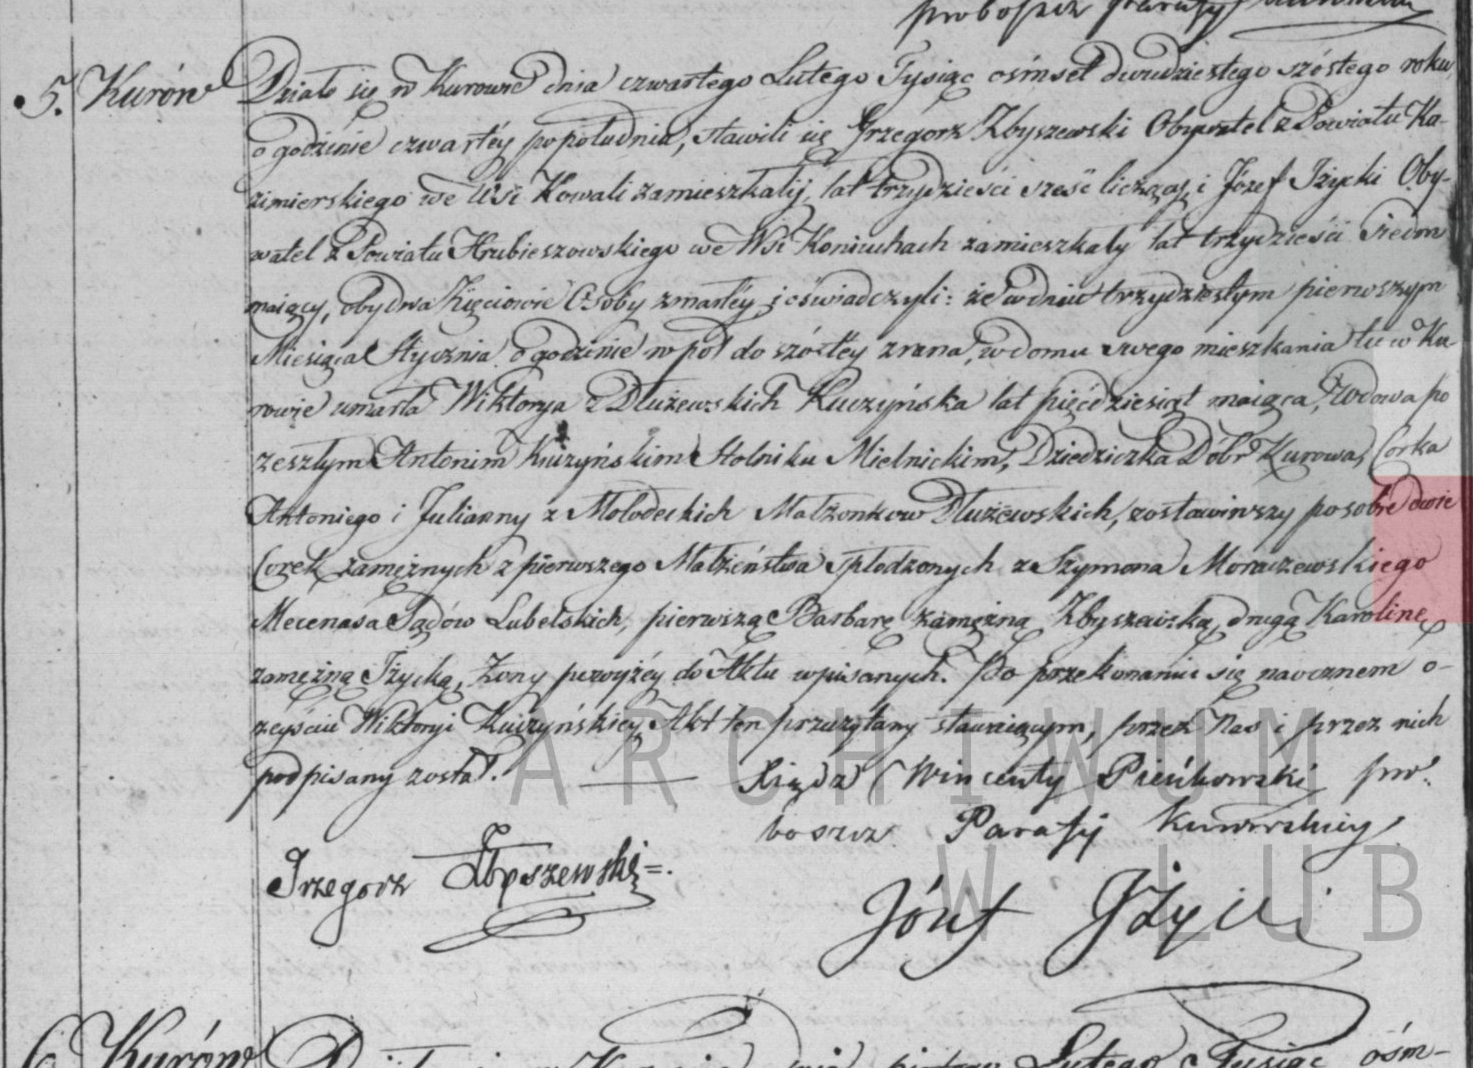 proboszcz Parafij
5. Kurów
Działo się w Kurowie dnia czwartego Lutego Tysiąc ośmset dwudziestego szóstego roku,
o godzinie czwartéy popołudniu, stawili się Grzegorz Zbyszewski Obywatel z Powiatu Ka-
zimierskiego we Wsi Kowali zamieszkały, lat trzydzieści sześć liczący, i Józef Iżycki Oby-
watel z Powiatu Hrubieszowskiego we Wsi Koniuchach zamieszkały lat trzydzieści siedm
maiący, obydwa Zięciowie Osoby zmarłéy i oświadczyli: że w dniu trzydziestym pierwszym
Miesiąca Stycznia o godzinie w pół do szóstéy zrana, w domu swego mieszkania tu w Ku-
rowie umarła Wiktorya z Dłużewskich Kuczyńska lat pięćdziesiąt maiąca, Wdowa po
zeszłym Antonim Kuczyńskim Stolniku Mielnickim, Dziedziczka Dóbr Kurowa, Corka
Antoniego i Julianny z Mołodeckich Małżonków Dłużewskich, zostawiwszy po sobie dwie
Corek zamężnych z pierwszego Małżeństwa spłodzonych z Szymona Moraczewskiego
Mecenasa Sądów Lubelskich, pierwszą Barbarę zamężną Zbyszewską, drugą Karolinę
zamężną Iżycką, Żony powyżéy do Aktu wpisanych. Po przekonaniu się naocznem o
zeyściu Wiktoryi Kuczyńskiey, Akt ten przeczytany stawaiącym, przez Nas i przez nich
podpisany został. Xiądz Wincenty Pieńkowski pro-
boszcz Parafij Kurowskiey
Grzegorz Zbyszewski
Józef Iżycki
ARCHIWUM
W LUB
6. Kurów
Działo się w Kurowie dnia piątego Lutego Tysiąc ośm-